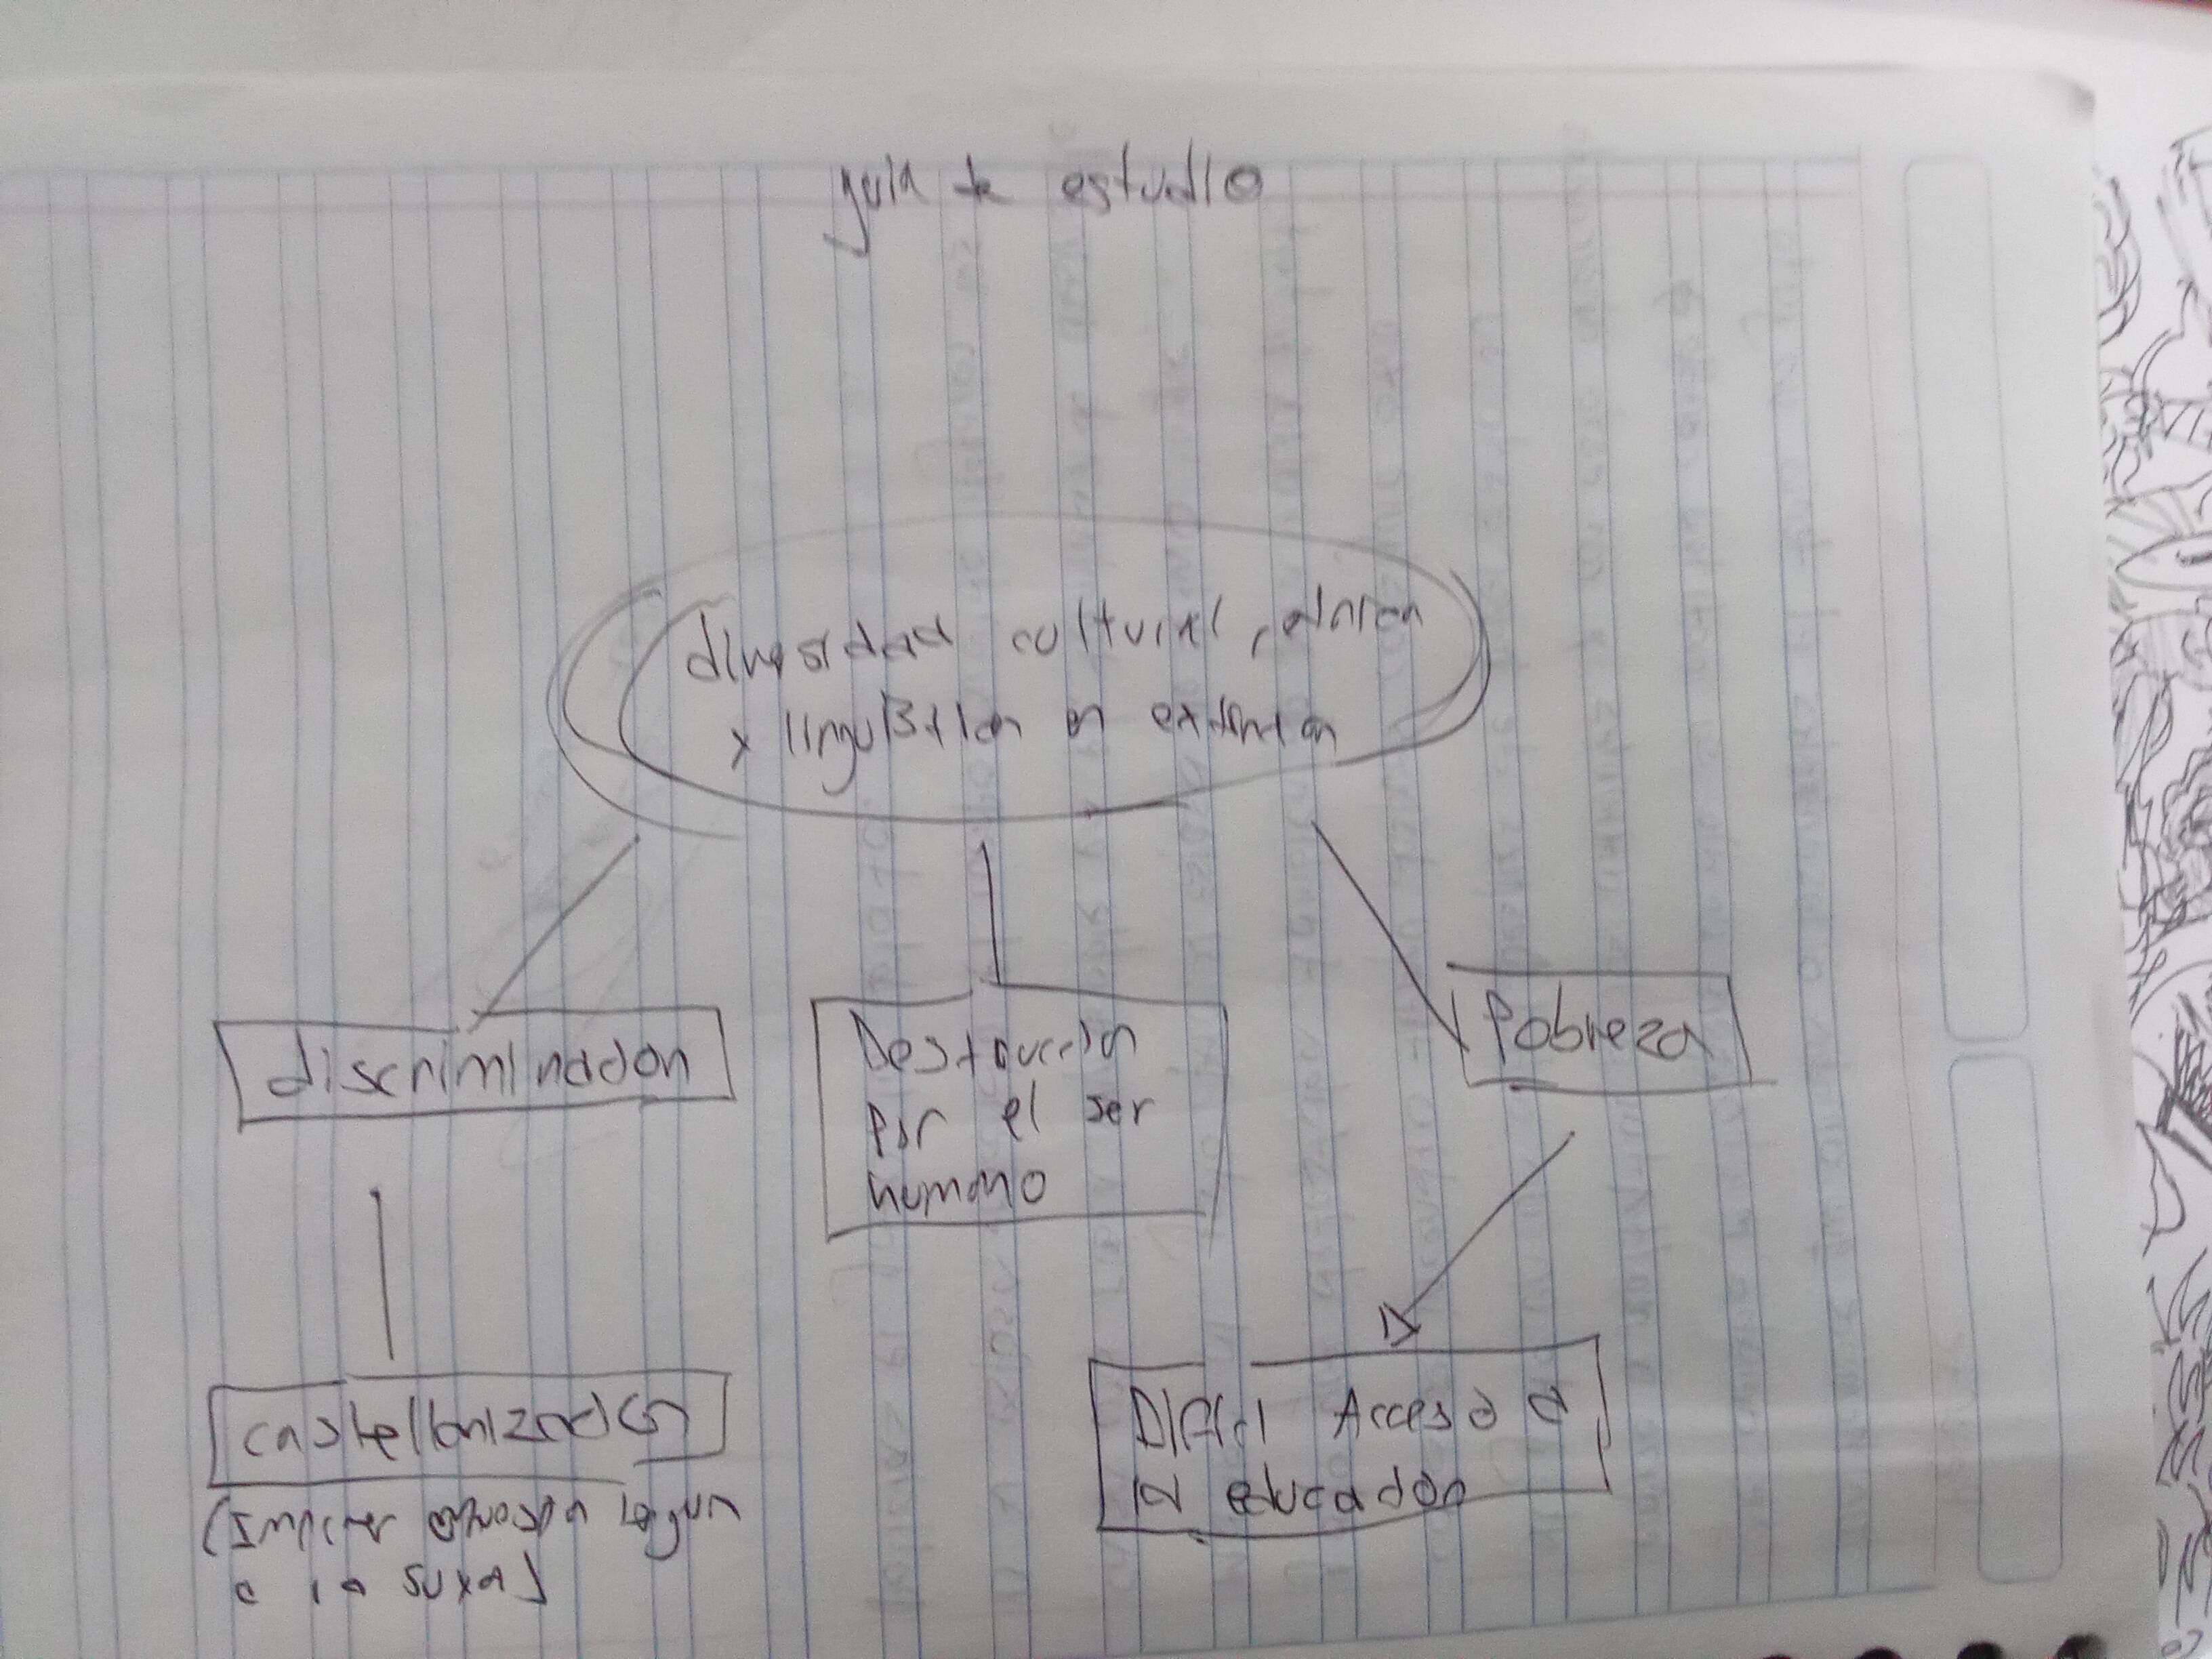 guia de estudio
diversidad cultural, etnica
y linguistica en extincion
discriminacion
Destruccion
por el ser
humano
Pobreza
castellanizacion
Dificil Acceso a
la educacion
a la suya)